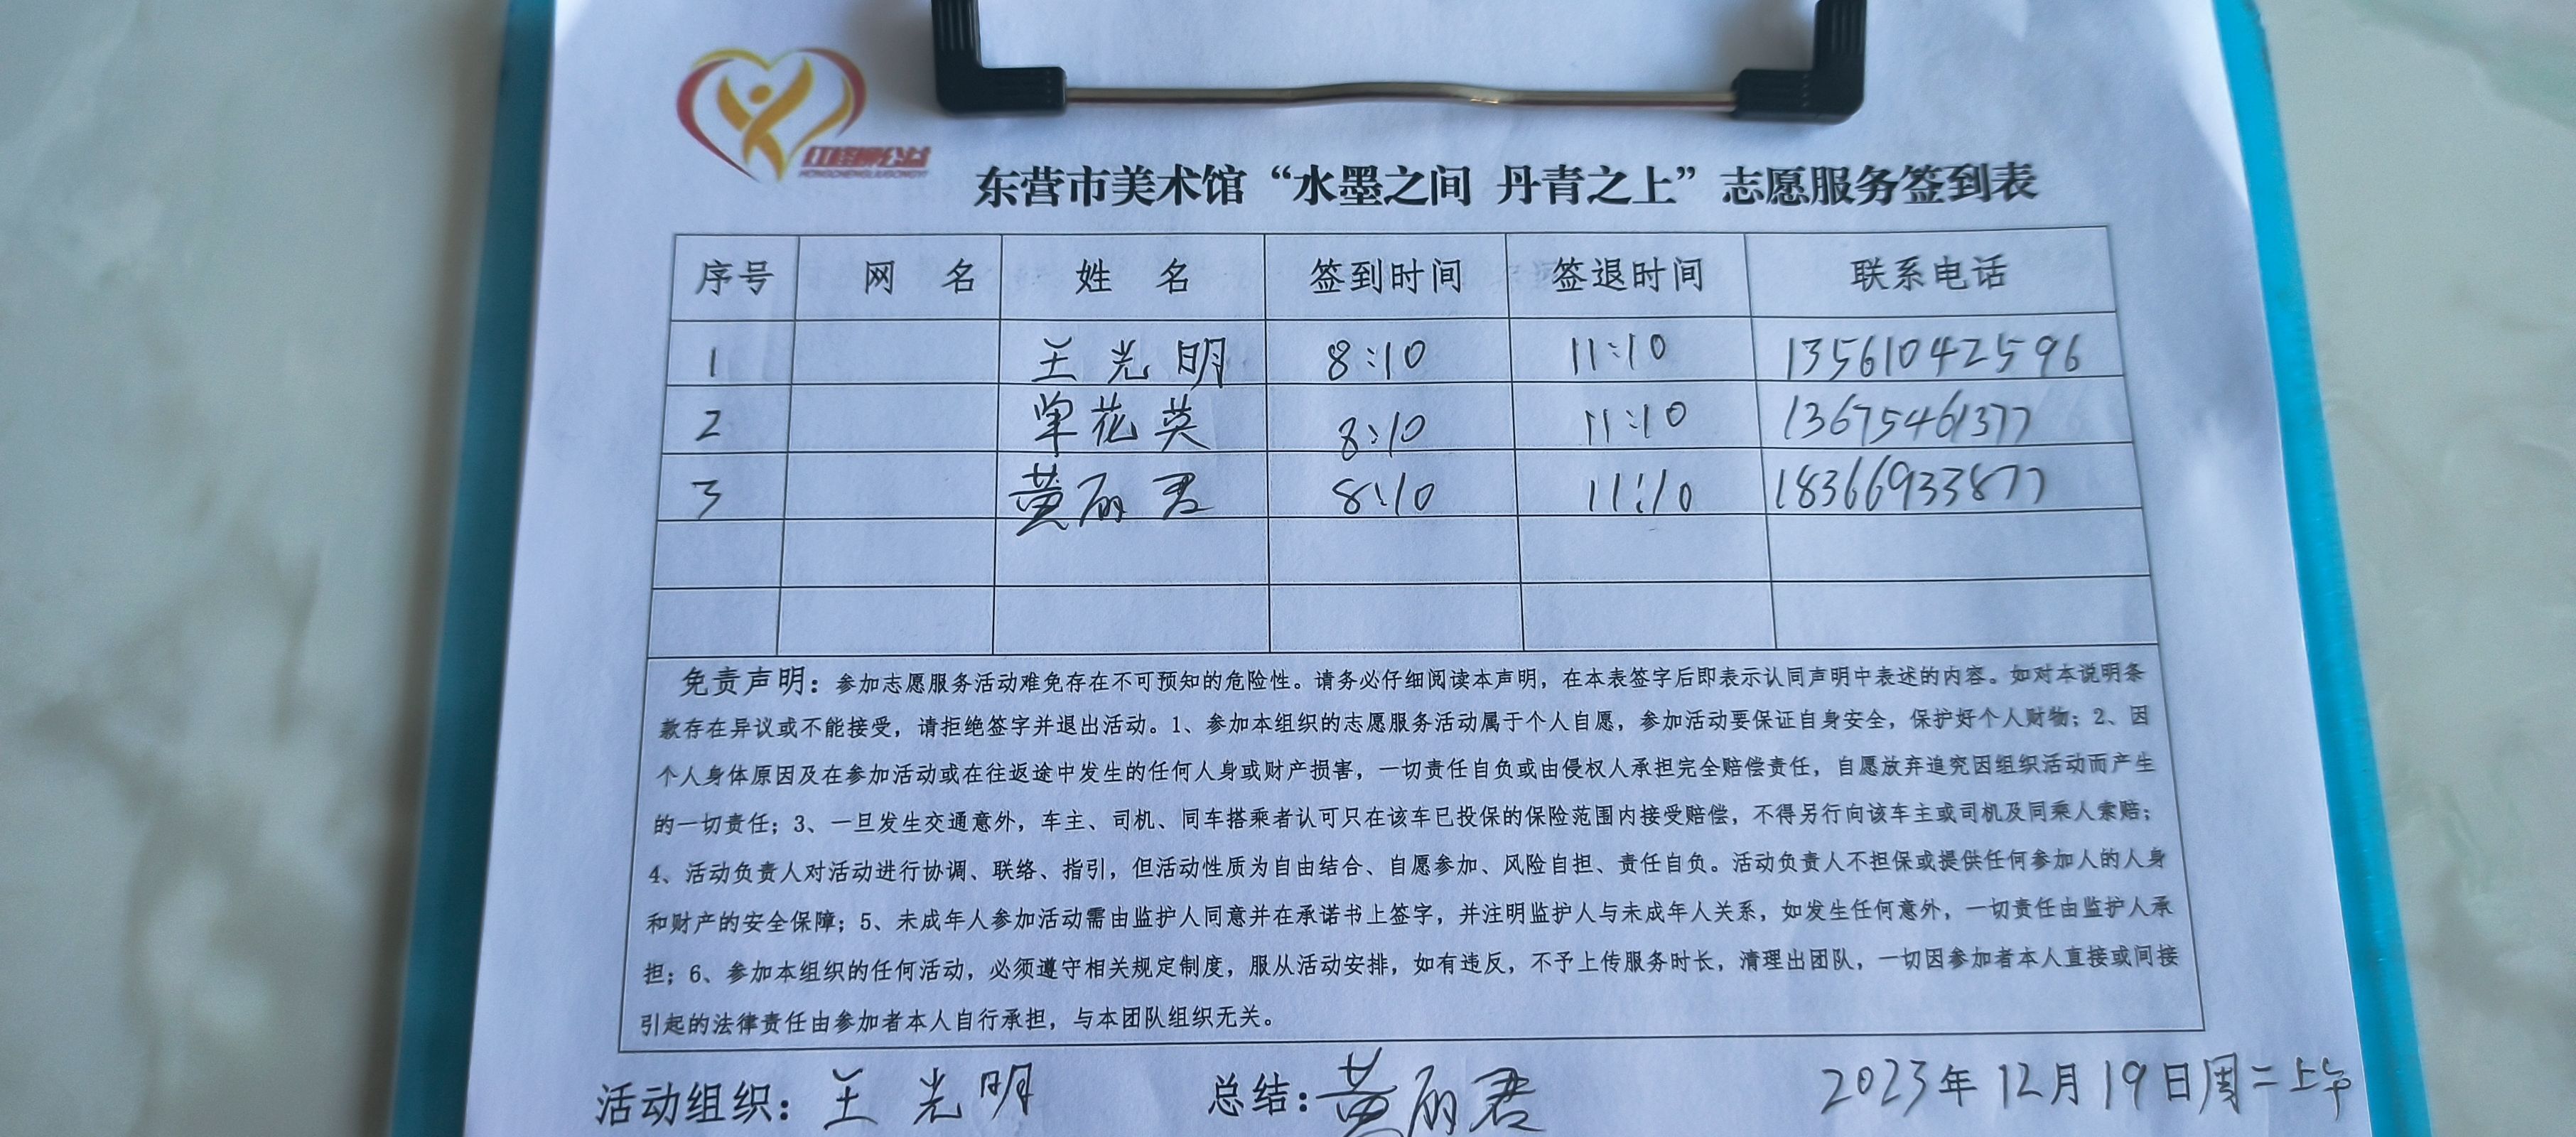 红柽柳公益
HONGCHENGLIUGONGYI
东营市美术馆“水墨之间 丹青之上”志愿服务签到表
序号 网 名 姓 名 签到时间 签退时间 联系电话
1 王光明 8:10 11:10 13561042596
2 单花英 8:10 11:10 13675461377
3 黄丽君 8:10 11:10 18366933877
免责声明：参加志愿服务活动难免存在不可预知的危险性。请务必仔细阅读本声明，在本表签字后即表示认同声明中表述的内容。如对本说明条
款存在异议或不能接受，请拒绝签字并退出活动。1、参加本组织的志愿服务活动属于个人自愿，参加活动要保证自身安全，保护好个人财物；2、因
个人身体原因及在参加活动或在往返途中发生的任何人身或财产损害，一切责任自负或由侵权人承担完全赔偿责任，自愿放弃追究因组织活动而产生
的一切责任；3、一旦发生交通意外，车主、司机、同车搭乘者认可只在该车已投保的保险范围内接受赔偿，不得另行向该车主或司机及同乘人索赔；
4、活动负责人对活动进行协调、联络、指引，但活动性质为自由结合、自愿参加、风险自担、责任自负。活动负责人不担保或提供任何参加人的人身
和财产的安全保障；5、未成年人参加活动需由监护人同意并在承诺书上签字，并注明监护人与未成年人关系，如发生任何意外，一切责任由监护人承
担；6、参加本组织的任何活动，必须遵守相关规定制度，服从活动安排，如有违反，不予上传服务时长，清理出团队，一切因参加者本人直接或间接
引起的法律责任由参加者本人自行承担，与本团队组织无关。
活动组织：王光明 总结：黄丽君 2023年12月19日周二上午